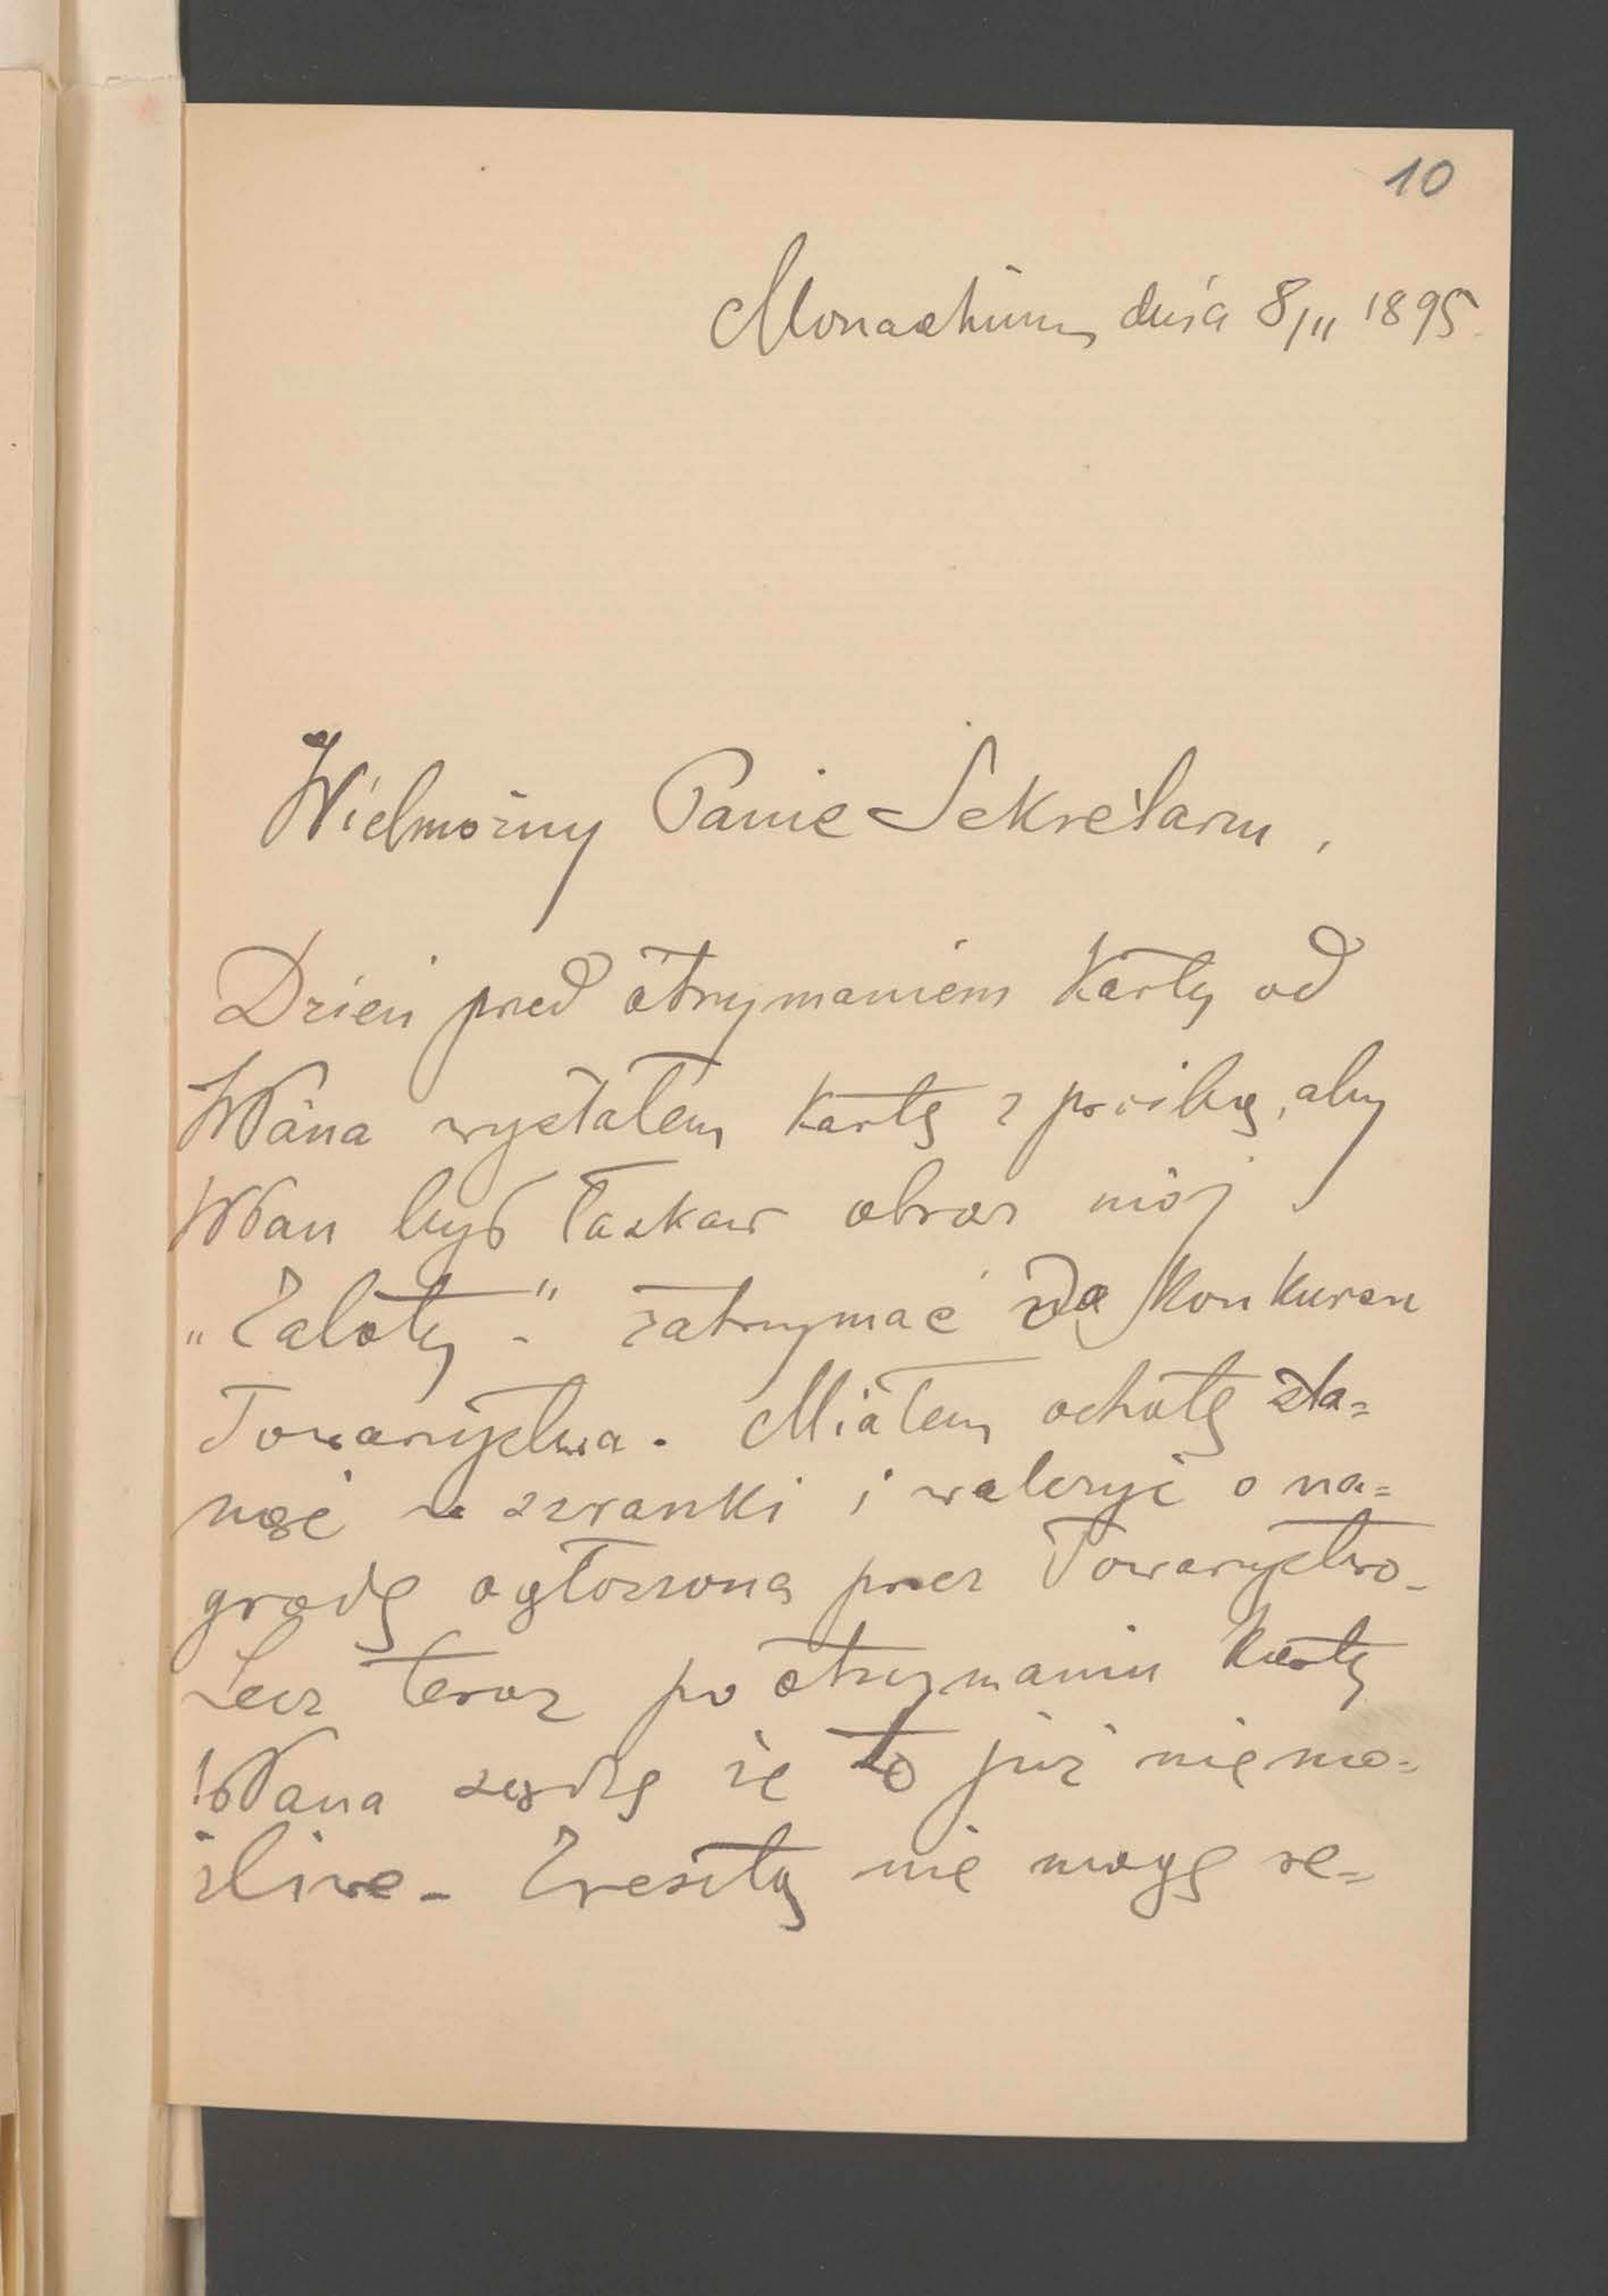 10
Monachium dnia 8/II 1895.
Wielmożny Panie Sekretarzu,
Dzień przed otrzymaniem Karty od
WPana wysłałem Kartę z prośbą, aby
WPan był łaskaw obraz mój
„Zaloty" zatrzymać do Konkursu
Towarzystwa. Miałem ochotę sta=
nąć w szranki i walczyć o na=
grodę ogłoszoną przez Towarzystwo.
Lecz teraz po otrzymaniu Karty
WPana sądzę że to już niemo=
żliwe. Zresztą nie mogę re=